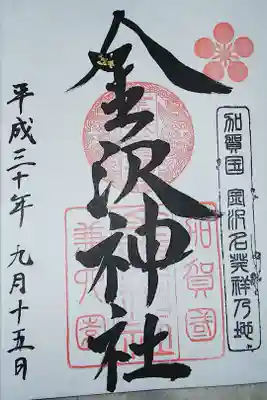 加賀国 金沢名発祥乃地
金沢神社
加賀國
兼六園
平成三十年 九月十五日